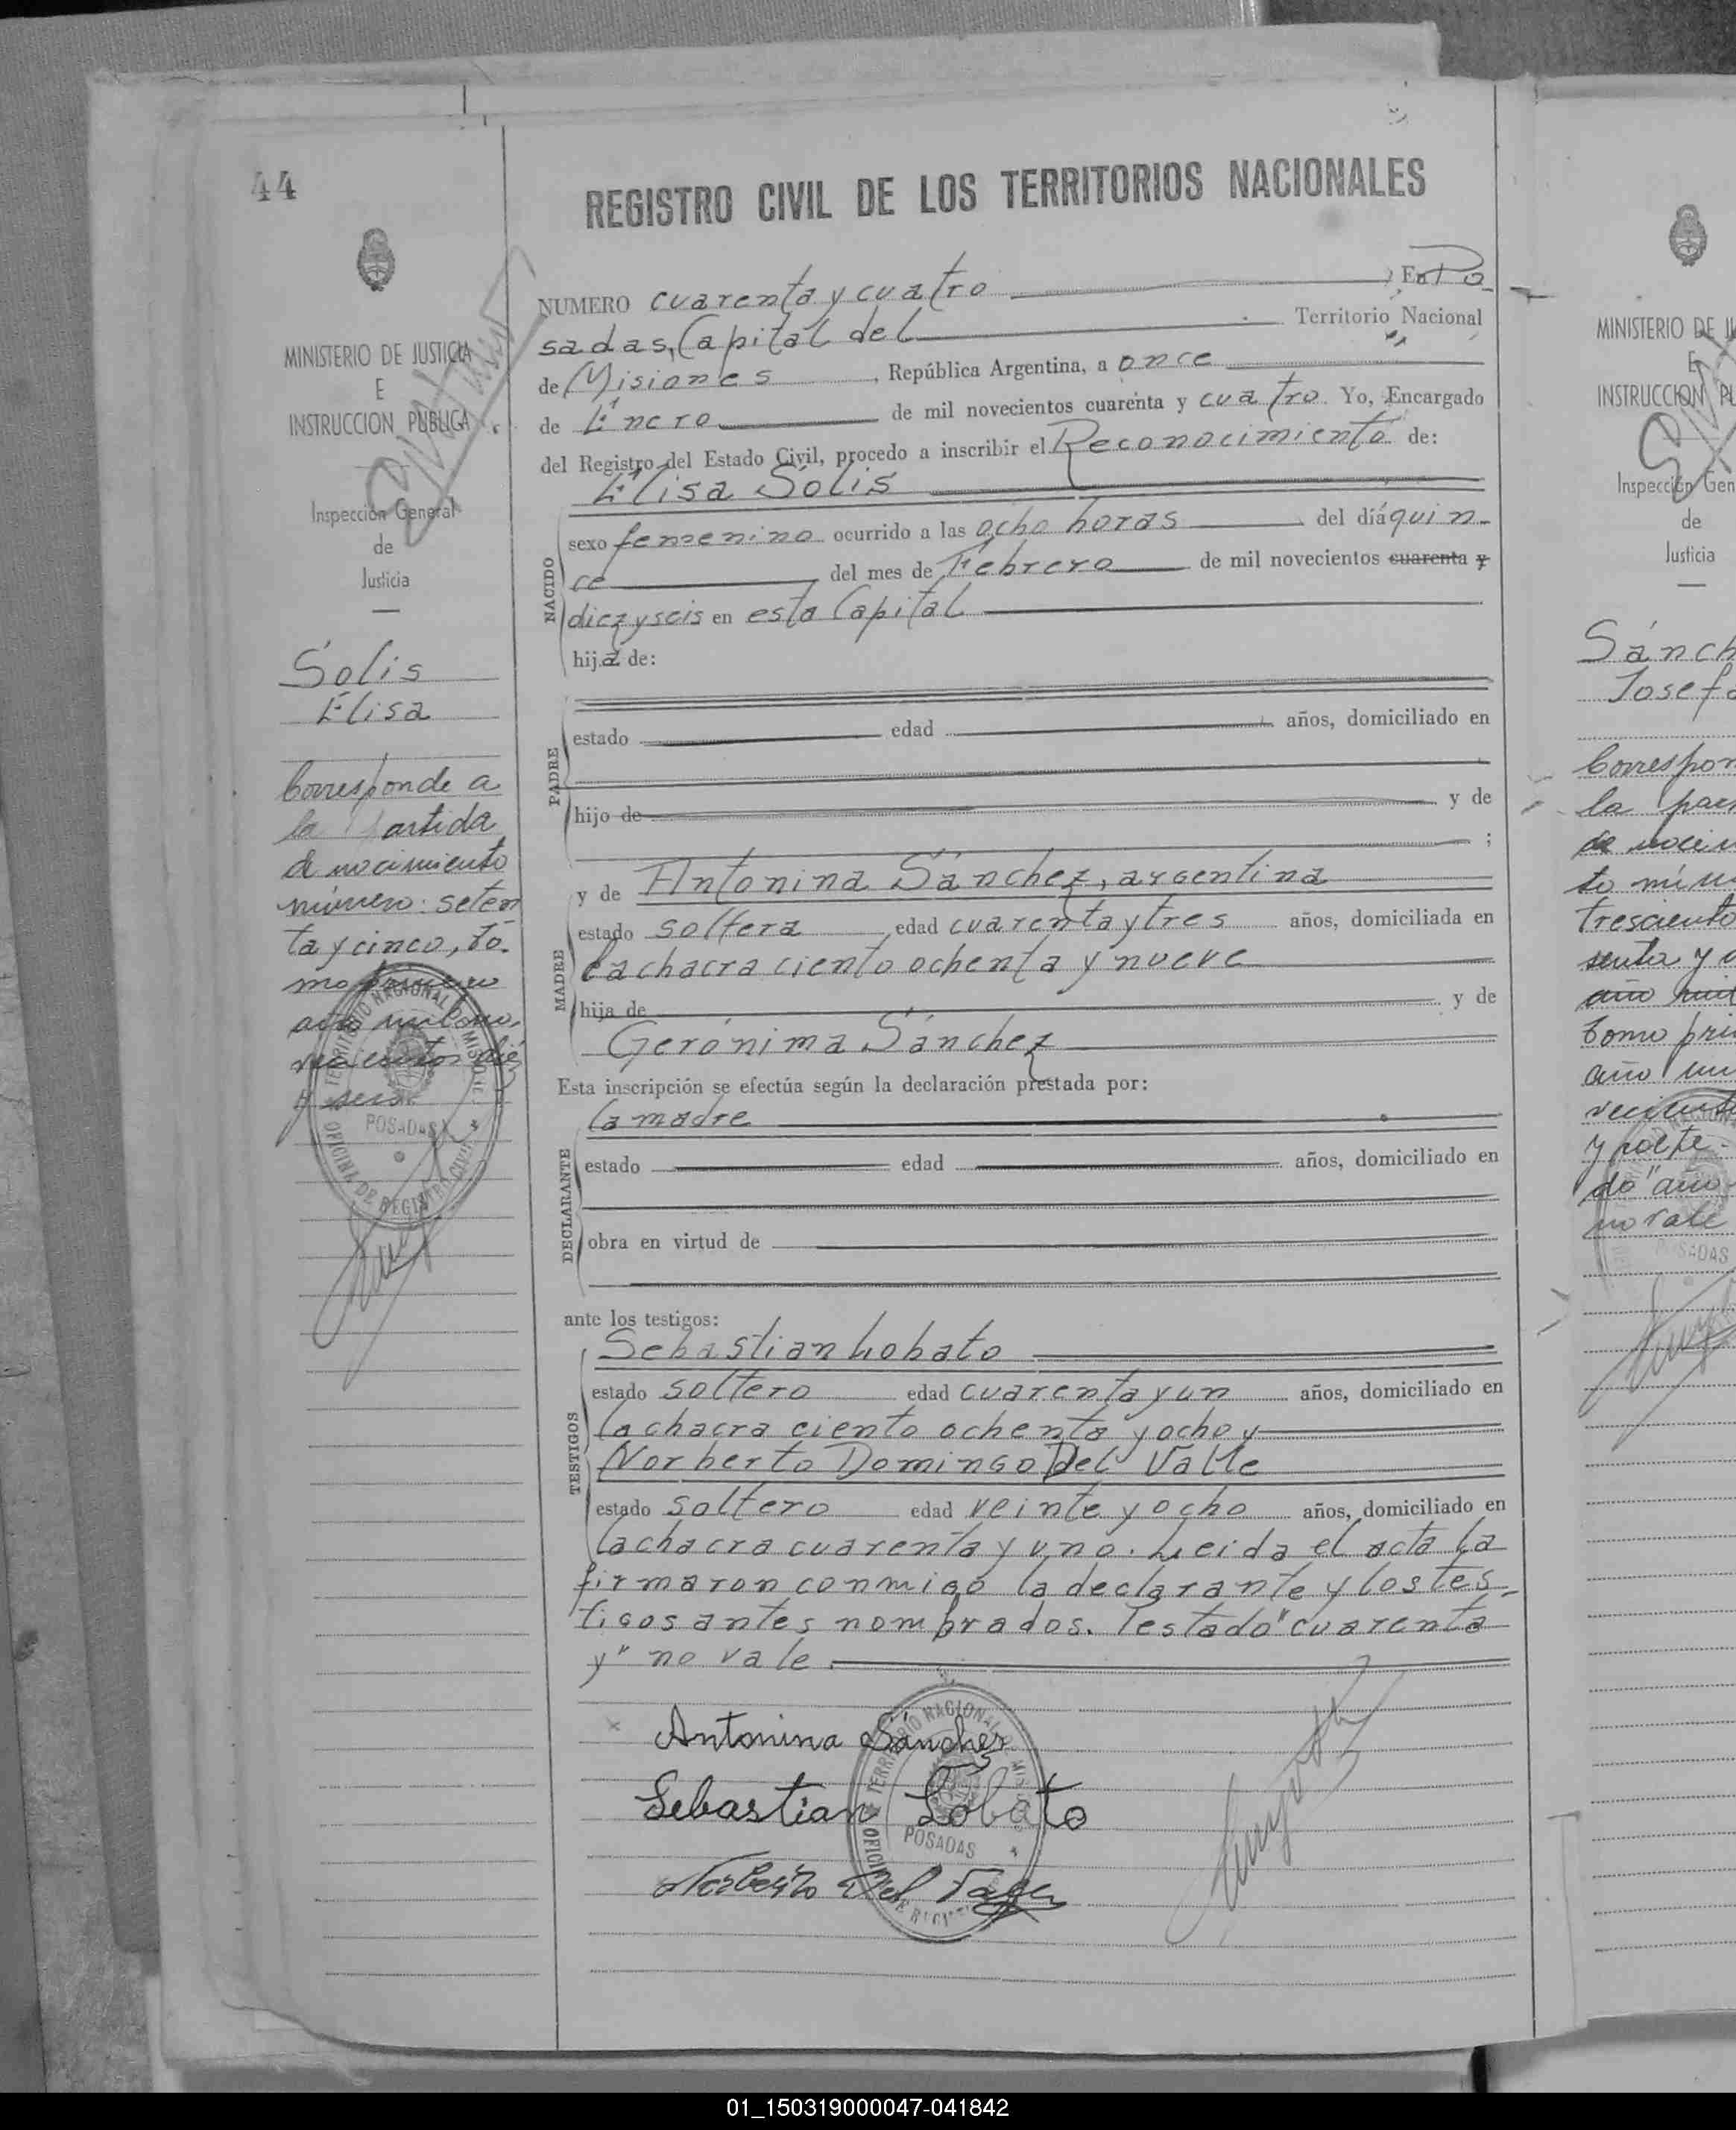 44
REGISTRO CIVIL DE LOS TERRITORIOS NACIONALES
MINISTERIO DE JUSTICIA
E
INSTRUCCION PUBLICA
Inspección General
de
Justicia
Solis
Elisa
Corresponde a
la partida
de nacimiento
número: seten
ta y cinco, to-
mo primero
año mil no-
vecientos diéz
y seis.
TERRITORIO NACIONAL DE MISIONES
POSADAS
OFICINA DE REGISTRO CIVIL
NUMERO cuarenta y cuatro ; En Po
sadas, Capital del Territorio Nacional
de Misiones , República Argentina, a once
de Enero de mil novecientos cuarenta y cuatro Yo, Encargado
del Registro del Estado Civil, procedo a inscribir el Reconocimiento de:
Elisa Solis
NACIDO
sexo femenino ocurrido a las ocho horas del día quin-
ce del mes de Febrero de mil novecientos cuarenta y
diez y seis en esta Capital
hija de:
PADRE
estado edad años, domiciliado en
hijo de y de
;
y de Antonina Sánchez, argentina
MADRE
estado soltera edad cuarenta y tres años, domiciliada en
la chacra ciento ochenta y nueve
hija de y de
Gerónima Sánchez
Esta inscripción se efectúa según la declaración prestada por:
la madre
DECLARANTE
estado edad años, domiciliado en
obra en virtud de
ante los testigos:
Sebastian Lobato
TESTIGOS
estado soltero edad cuarenta y un años, domiciliado en
la chacra ciento ochenta y ocho y
Norberto Domingo Del Valle
estado soltero edad veinte y ocho años, domiciliado en
la chacra cuarenta y uno. Leida el acta la
firmaron conmigo la declarante y los tes-
tigos antes nombrados. Testado "cuarenta
y" no vale.
Antonina Sánchez
Sebastian Lobato
Norberto Del Valle
TERRITORIO NACIONAL DE MISIONES
POSADAS
OFICINA DE REGISTRO CIVIL
MINISTERIO DE JU
E
INSTRUCCION PU
Inspección Gen
de
Justicia
Sánch
Josefa
Correspon
la par
de nacim
to núm
trescientos
senta y
año mil
tomo pri
año mil
vecient
y siete.
do "año
no vale
POSADAS
01_150319000047-041842